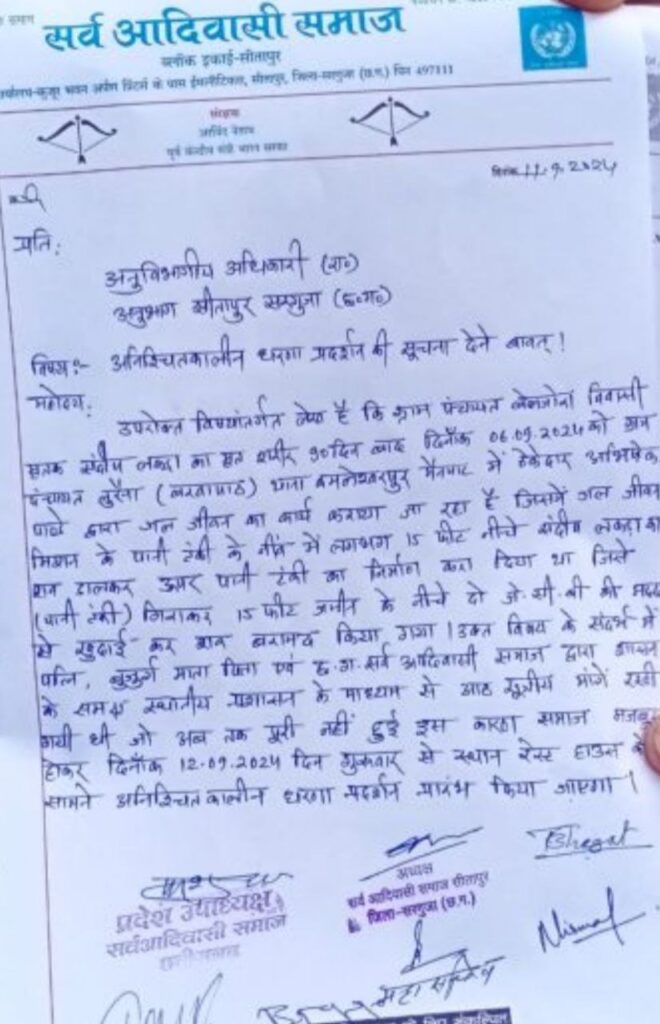 सर्व आदिवासी समाज
ब्लॉक इकाई-सीतापुर
भवन अर्पण प्रिंटर्स के पास सीतापुर, जिला-सरगुजा (छ.ग.) पिन 497111
संरक्षक
अरविंद नेताम
पूर्व केन्द्रीय मंत्री भारत सरकार
दिनांक 11.9.2024
प्रति:
अनुविभागीय अधिकारी (रा०)
अनुभाग सीतापुर सरगुजा (छ०ग०)
विषय:- अनिश्चितकालीन धरना प्रदर्शन की सूचना देने बावत् !
महोदय:
उपरोक्त विषयांतर्गत लेख है कि ग्राम पंचायत बेलजोरा निवासी
मृतक संदीप लकड़ा का मृत शरीर 90 दिन बाद दिनाँक 06.09.2024 को ग्राम
पंचायत लुरैना (बरवापाठ) थाना कमलेश्वरपुर मैनपाट में ठेकेदार अभिषेक
पाण्डे द्वारा जल जीवन का कार्य कराया जा रहा है जिसमें जल जीवन
मिशन के पानी टंकी के नींव में लगभग 15 फीट नीचे संदीप लकड़ा का
शव डालकर ऊपर पानी टंकी का निर्माण करा दिया था जिसे
(पानी टंकी) गिराकर 15 फीट जमीन के नीचे दो जे.सी.बी की मदद
से खुदाई कर शव बरामद किया गया। उक्त विषय के संदर्भ में
पत्नि, बुजुर्ग माता पिता एवं छ.ग. सर्व आदिवासी समाज द्वारा शासन
के समक्ष स्थानीय प्रशासन के माध्यम से आठ सूत्रीय मांगें रखी
गयी थी जो अब तक पूरी नहीं हुई इस कारण समाज मजबूर
होकर दिनाँक 12.09.2024 दिन गुरुवार से स्थान रेस्ट हाउस के
सामने अनिश्चितकालीन धरना प्रदर्शन प्रारंभ किया जाएगा।
Bhagat
अध्यक्ष
सर्व आदिवासी समाज सीतापुर
जिला-सरगुजा (छ.ग.)
प्रदेश उपाध्यक्ष
सर्वआदिवासी समाज
छत्तीसगढ़
Nirmal
महासचिव